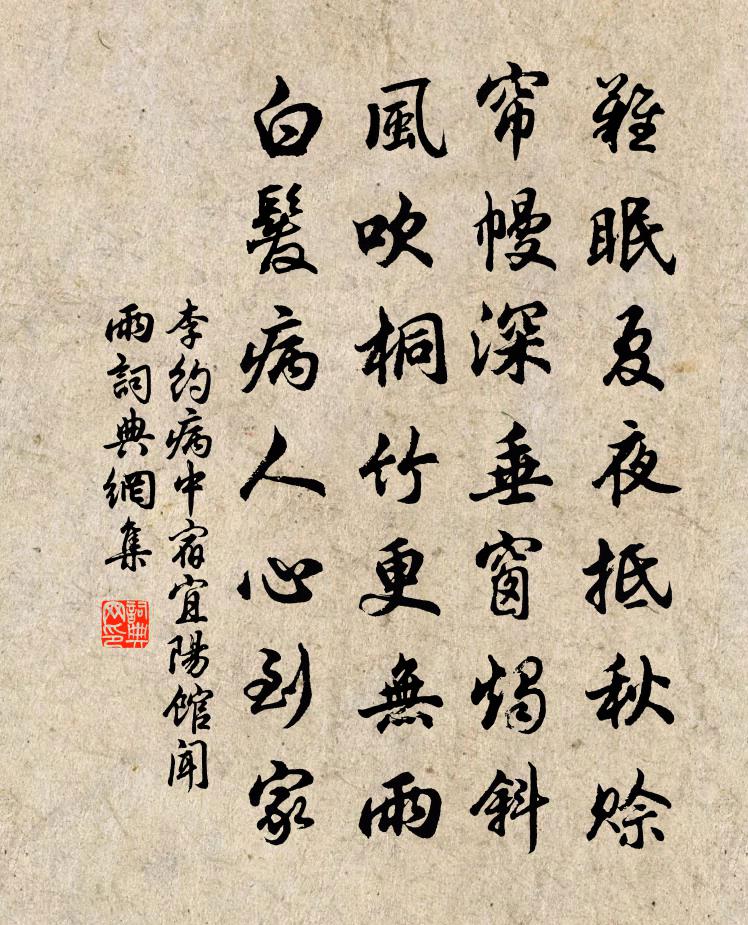 難眠夏夜抵秋賒
帘幔深垂窗燭斜
風吹桐竹更無雨
白髮病人心到家
李約病中宿宜陽館聞
雨詞典網集
詞典
网印